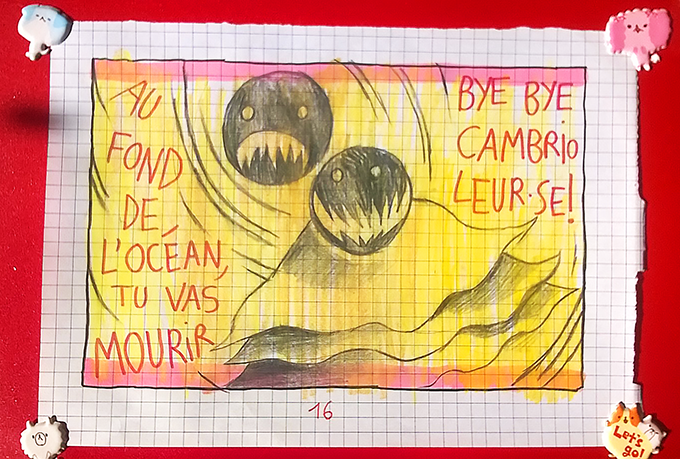 AU
FOND
DE
L'OCÉAN,
TU VAS
MOURIR
BYE BYE
CAMBRIO
LEUR·SE!
16
Let's
go!